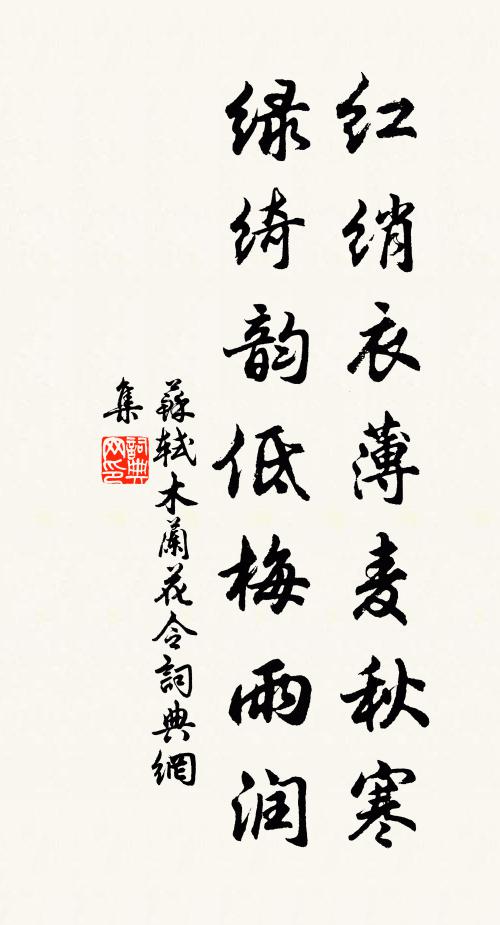 红绡衣薄麦秋寒
绿绮韵低梅雨润
蘇軾木蘭花令詞典網
集
詞典網印